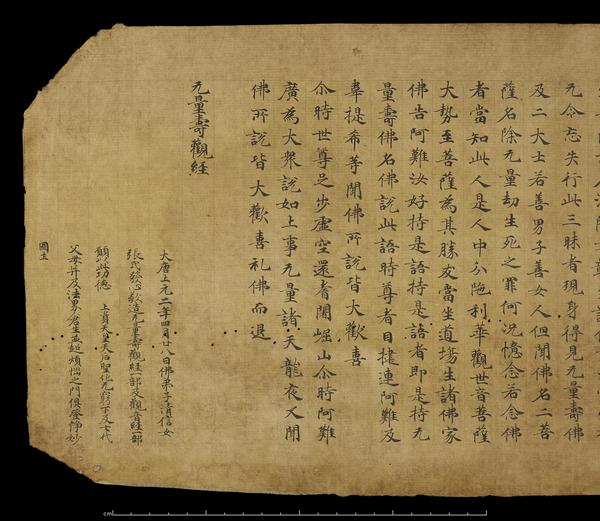 无令忘失行此三昧者現身得見无量壽佛
及二大士若善男子善女人但聞佛名二菩
薩名除无量劫生死之罪何況憶念若念佛
者當知此人是人中分陁利華觀世音菩薩
大勢至菩薩為其勝友當坐道場生諸佛家
佛告阿難汝好持是語持是語者即是持无
量壽佛名佛說此語時尊者目揵連阿難及
韋提希等聞佛所說皆大歡喜
尒時世尊足步虛空還耆闍崛山尒時阿難
廣為大衆說如上事无量諸天龍夜叉聞
佛所說皆大歡喜礼佛而退
无量壽觀經
大唐上元二年四月廿八日佛弟子清信女
張氏發心敬造无量壽觀經一部及觀音經一部
願以此功德 上資天皇天后聖化无窮下及七代
父母并及法界倉生並超煩惱之門俱登淨妙
國土
cm